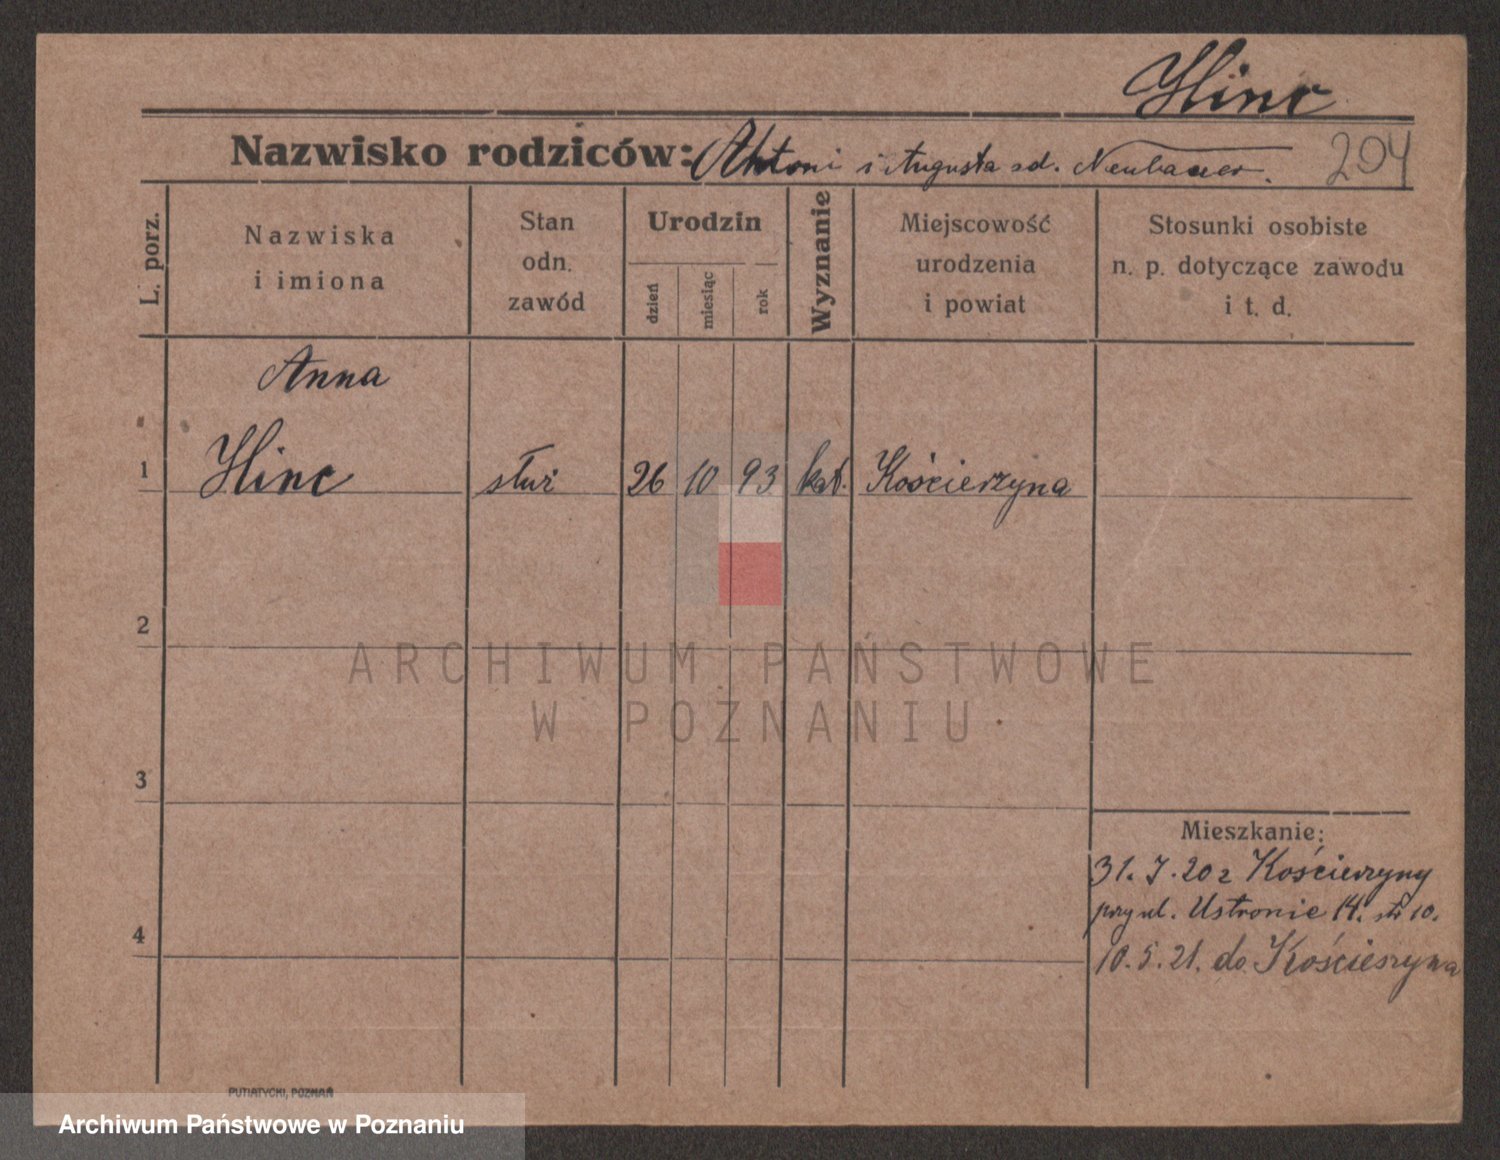 Hinc
Nazwisko rodziców: Antoni i Augusta sd. Neubauer. 204
L. porz.
Nazwiska i imiona
Stan odn. zawód
Urodzin
dzień
miesiąc
rok
Wyznanie
Miejscowość urodzenia i powiat
Stosunki osobiste n. p. dotyczące zawodu i t. d.
Anna
1 Hinc służ 26 10 93 kat. Kościerzyna
2
3
4
ARCHIWUM PAŃSTWOWE
W POZNANIU
Mieszkanie:
31. 7. 20 z Kościerzyny
przy ul. Ustronie 14. 10.
10. 5. 21. do Kościerzyna
PUTIATYCKI, POZNAŃ
Archiwum Państwowe w Poznaniu